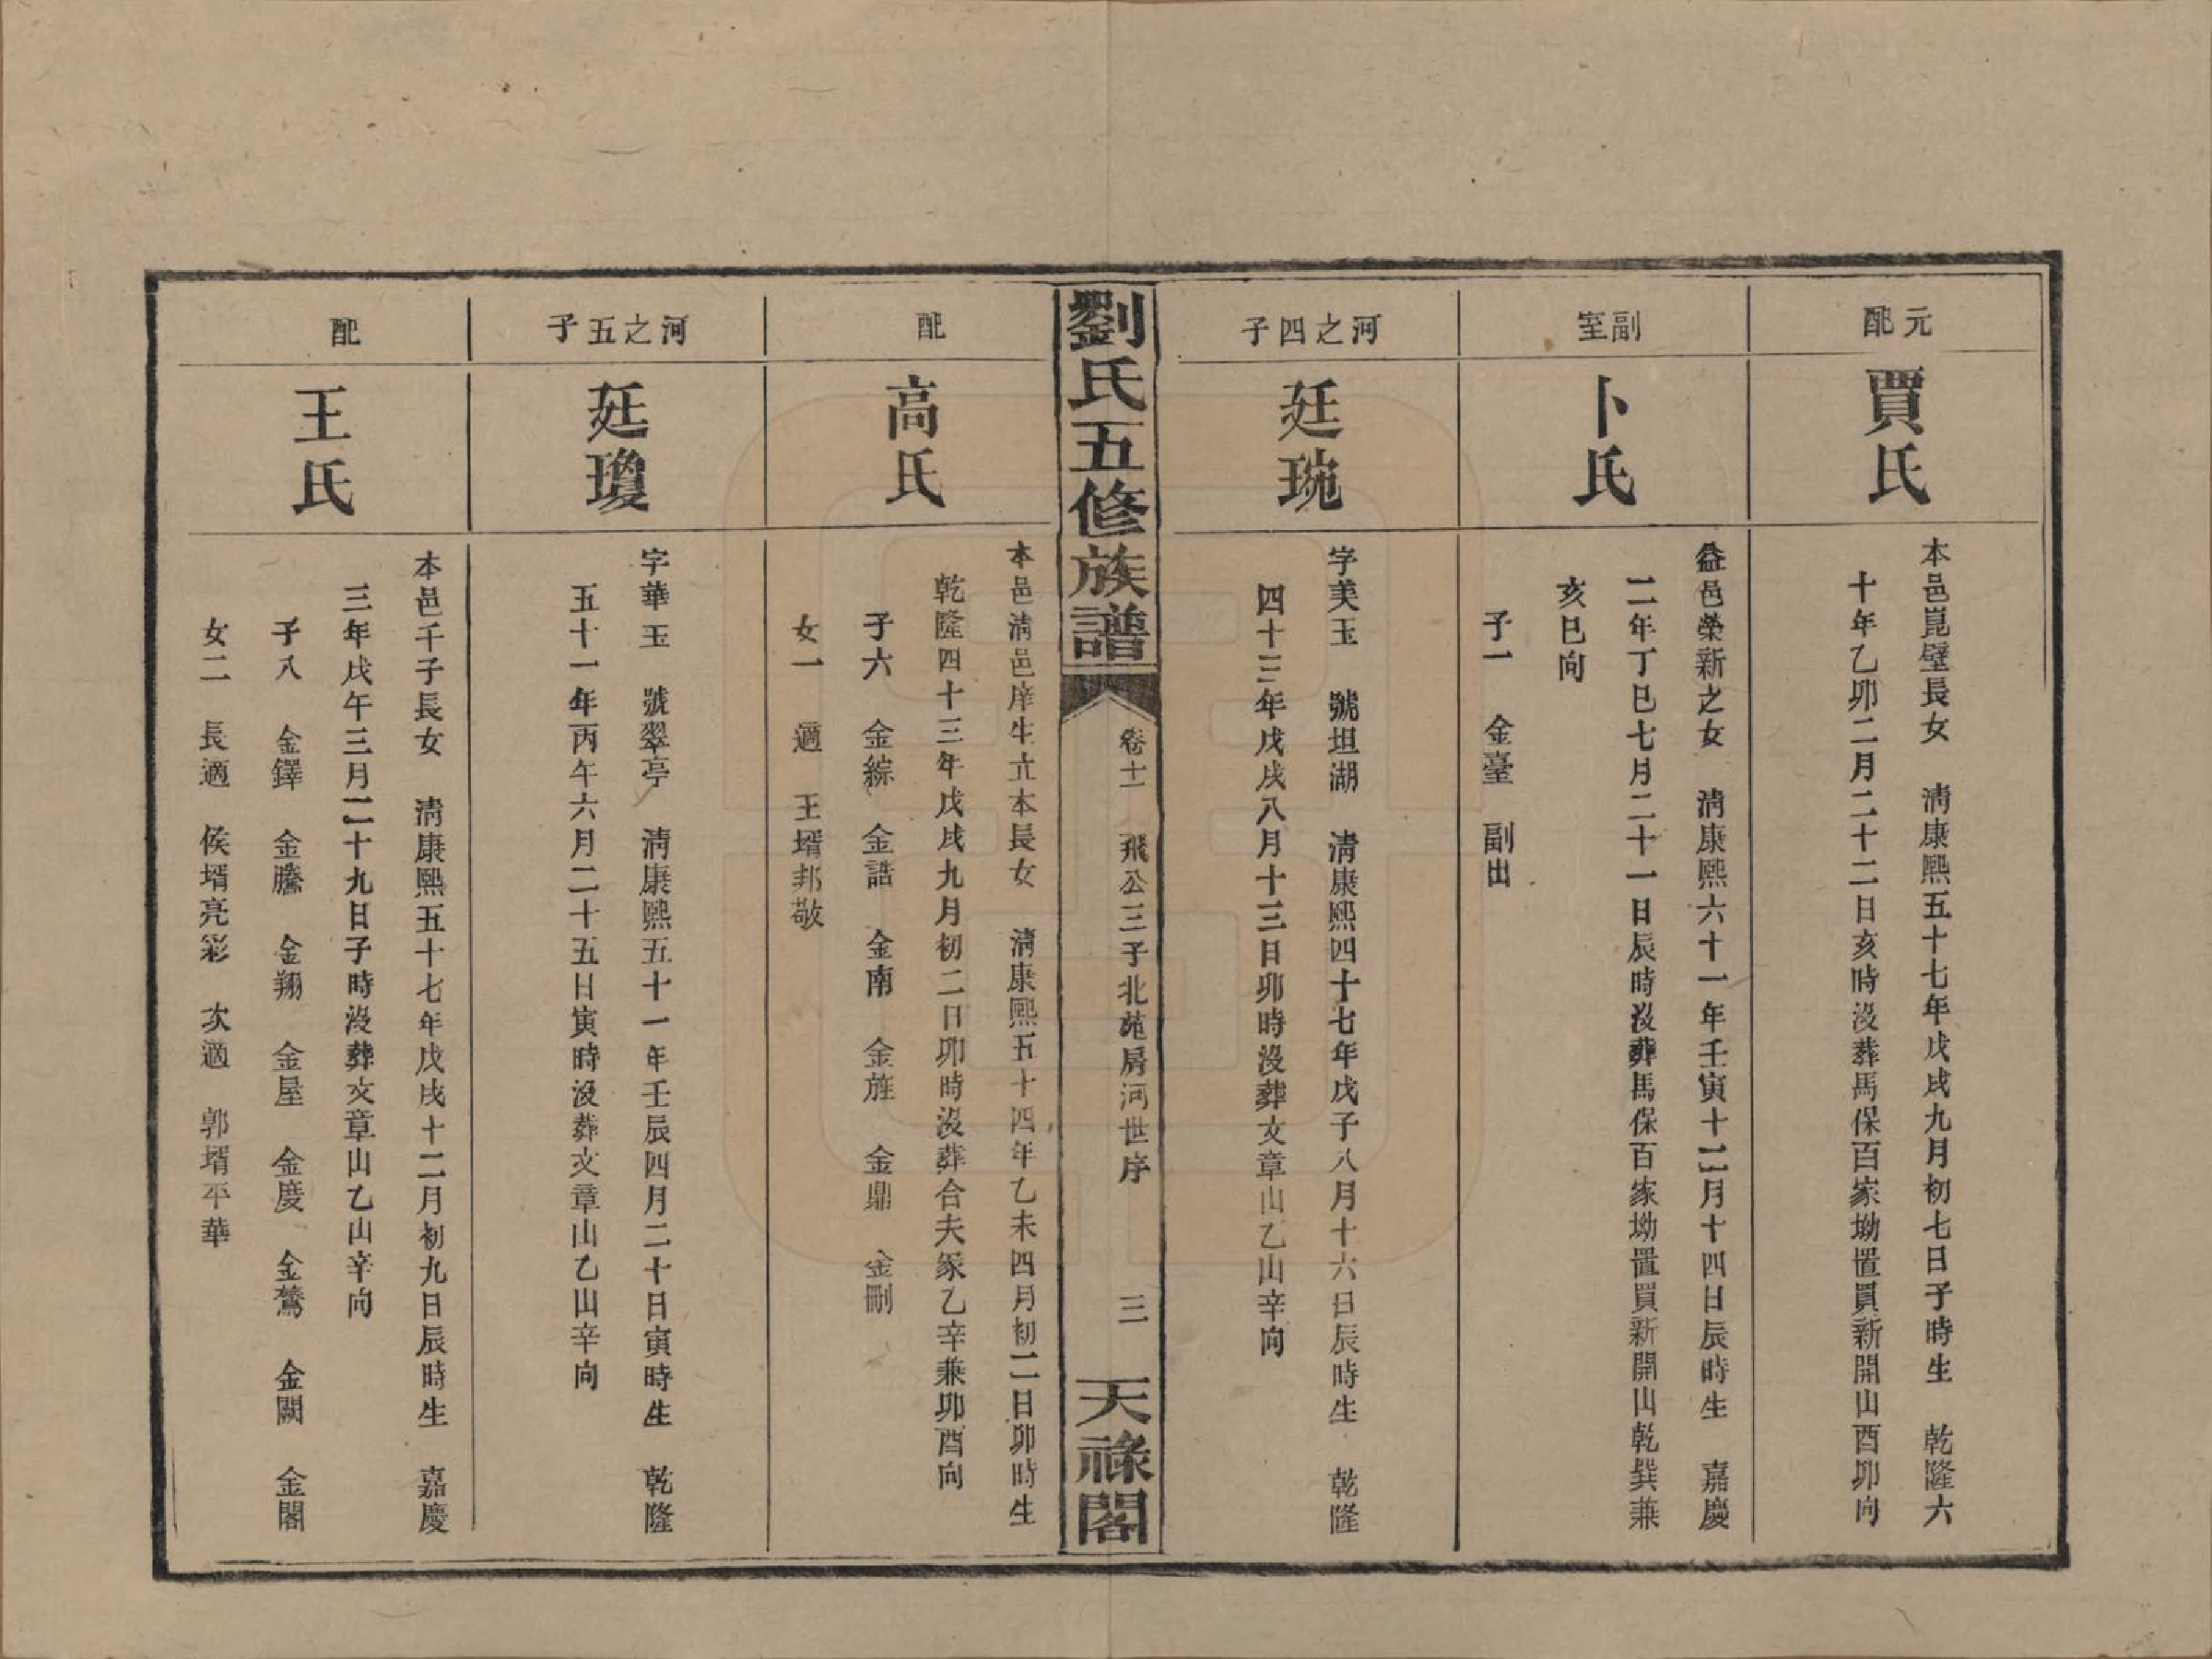 元配
賈氏
本邑崑壁長女　清康熙五十七年戊戌九月初七日子時生　乾隆六
十年乙卯二月二十二日亥時沒葬馬保百家坳置買新開山酉卯向
副室
卜氏
益邑榮新之女　清康熙六十一年壬寅十二月十四日辰時生　嘉慶
二年丁巳七月二十一日辰時沒葬馬保百家坳置買新開山乾巽兼
亥巳向
子一　金臺　副出
河之四子
廷琬
字美玉　號坦湖　清康熙四十七年戊子八月十六日辰時生　乾隆
四十三年戊戌八月十三日卯時沒葬文章山乙山辛向
劉氏五修族譜
卷十一　飛公三子北苑房河世序　三
天祿閣
配
高氏
本邑清邑庠生立本長女　清康熙五十四年乙未四月初二日卯時生
乾隆四十三年戊戌九月初二日卯時沒葬合夫冢乙辛兼卯酉向
子六　金綜　金誥　金南　金旌　金鼎　金剛
女一　適　王壻邦敬
河之五子
廷瓊
字華玉　號翠亭　清康熙五十一年壬辰四月二十日寅時生　乾隆
五十一年丙午六月二十五日寅時沒葬文章山乙山辛向
配
王氏
本邑千子長女　清康熙五十七年戊戌十二月初九日辰時生　嘉慶
三年戊午三月二十九日子時沒葬文章山乙山辛向
子八　金鐸　金騰　金翔　金屋　金慶　金鶩　金闕　金閣
女二　長適　侯壻亮彩　次適　郭壻平華